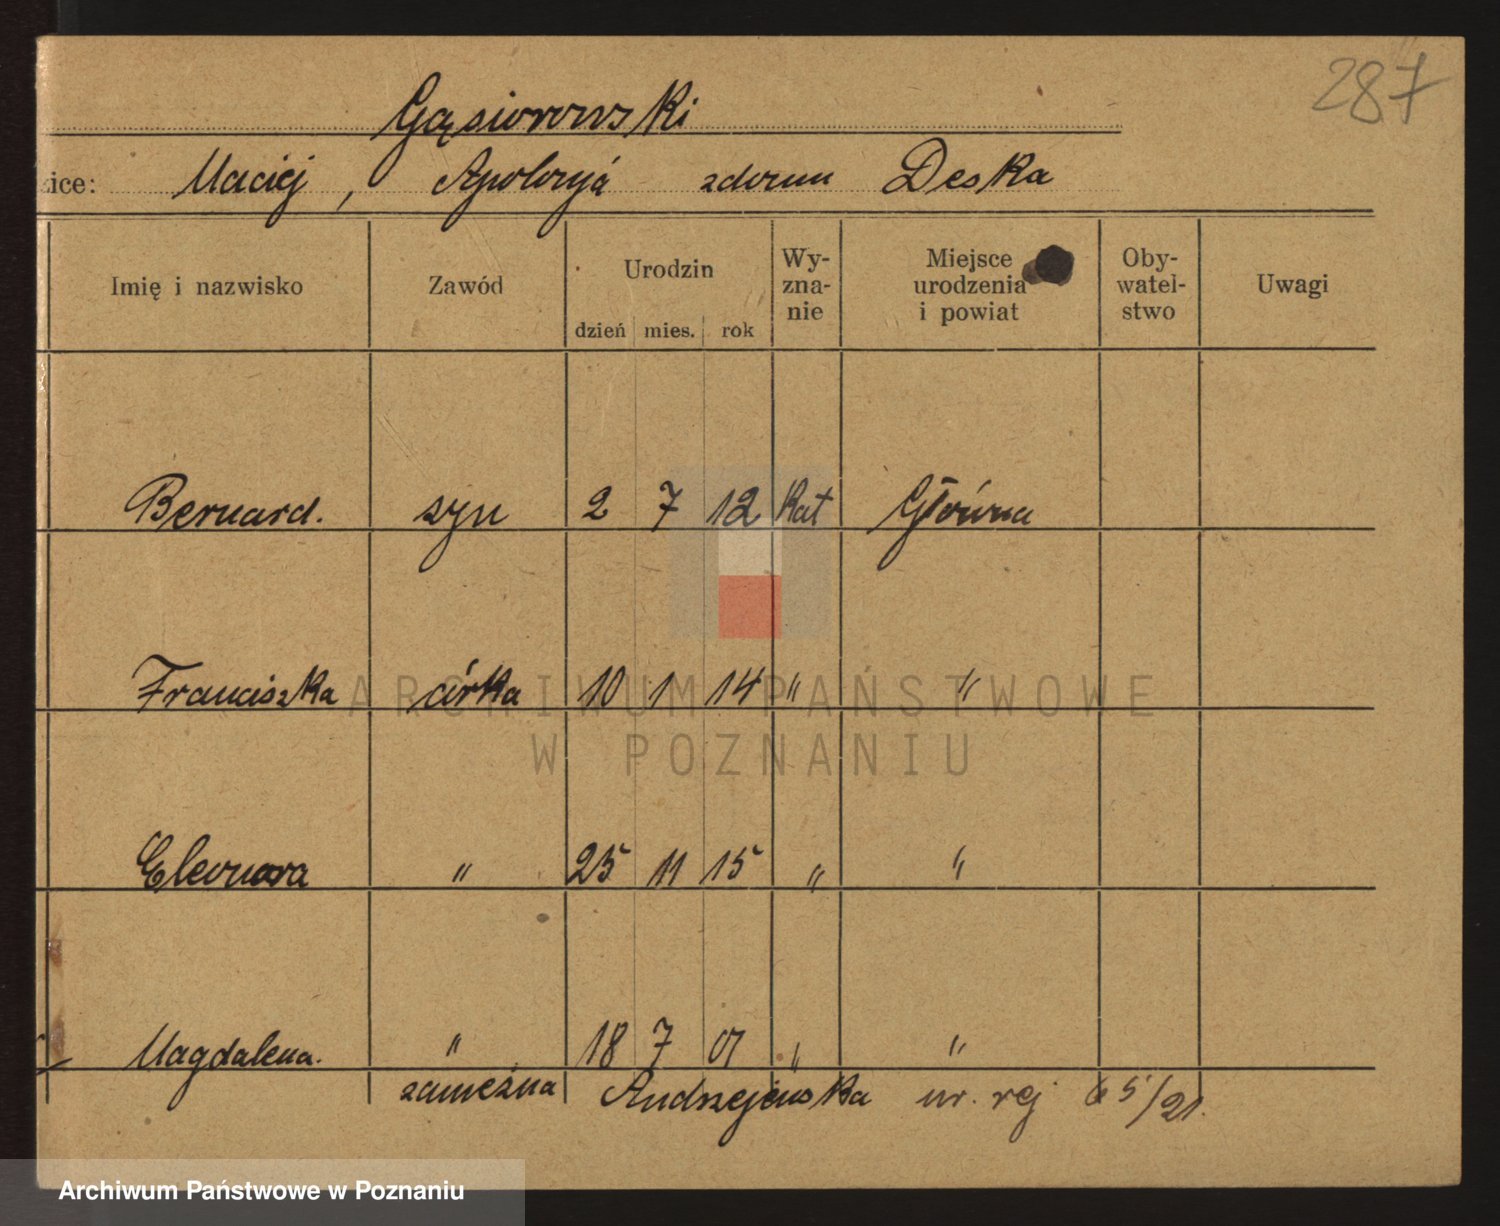 287
Gąsiorowski
ice: Maciej, Apolonja zdomu Deska
Imię i nazwisko Zawód Urodzin Wy- Miejsce Oby- Uwagi
zna- urodzenia watel-
dzień mies. rok nie i powiat stwo
Bernard. syn 2 7 12 Kat Główna
Franciszka córka 10 1 14 " "
Eleonora " 25 11 15 " "
Magdalena. " 18 7 01 " "
zamężna Andrzejewska nr. rej 5/21.
ARCHIWUM PAŃSTWOWE
W POZNANIU
Archiwum Państwowe w Poznaniu